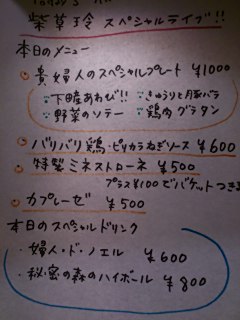 Today's
紫草玲 スペシャルライブ!!
本日のメニュー
貴婦人のスペシャルプレート ¥1000
下田産あわび!! きゅうりと豚バラ
野菜のソテー 鶏肉グラタン
バリバリ鶏・ピリカラねぎソース ¥600
特製ミネストローネ ¥500
プラス¥100でバケットつき
カプレーゼ ¥500
本日のスペシャルドリンク
・婦人・ド・ノエル ¥600
・秘密の森のハイボール ¥800